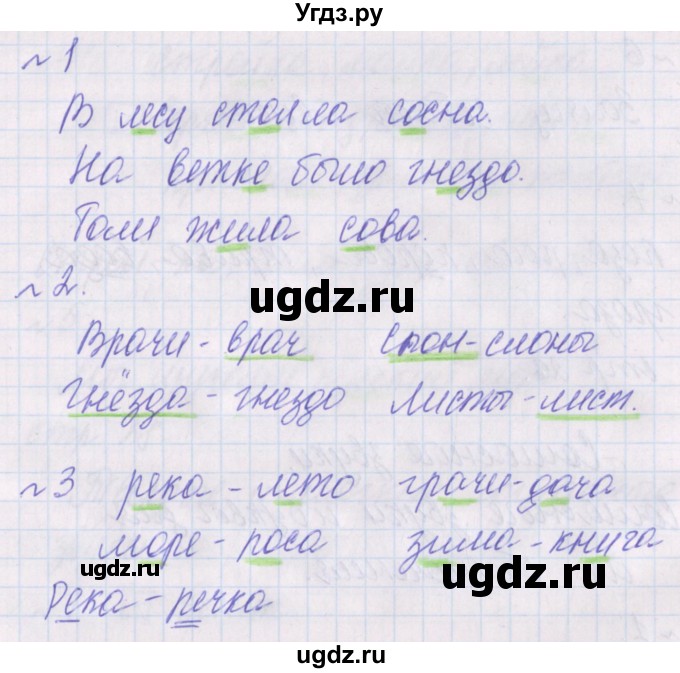 Угдз.ру
~ 1
В лесу стояла сосна.
На ветке было гнездо.
Там жила сова.
~ 2.
ugdz.ru
Врачи - врач Слон - слоны
Гнёзда - гнездо Листы - лист.
~ 3 река - лето грачи - дача
ugdz.ru
море - роса зима - книга
ugdz.ru
Река - речка
ugdz.ru